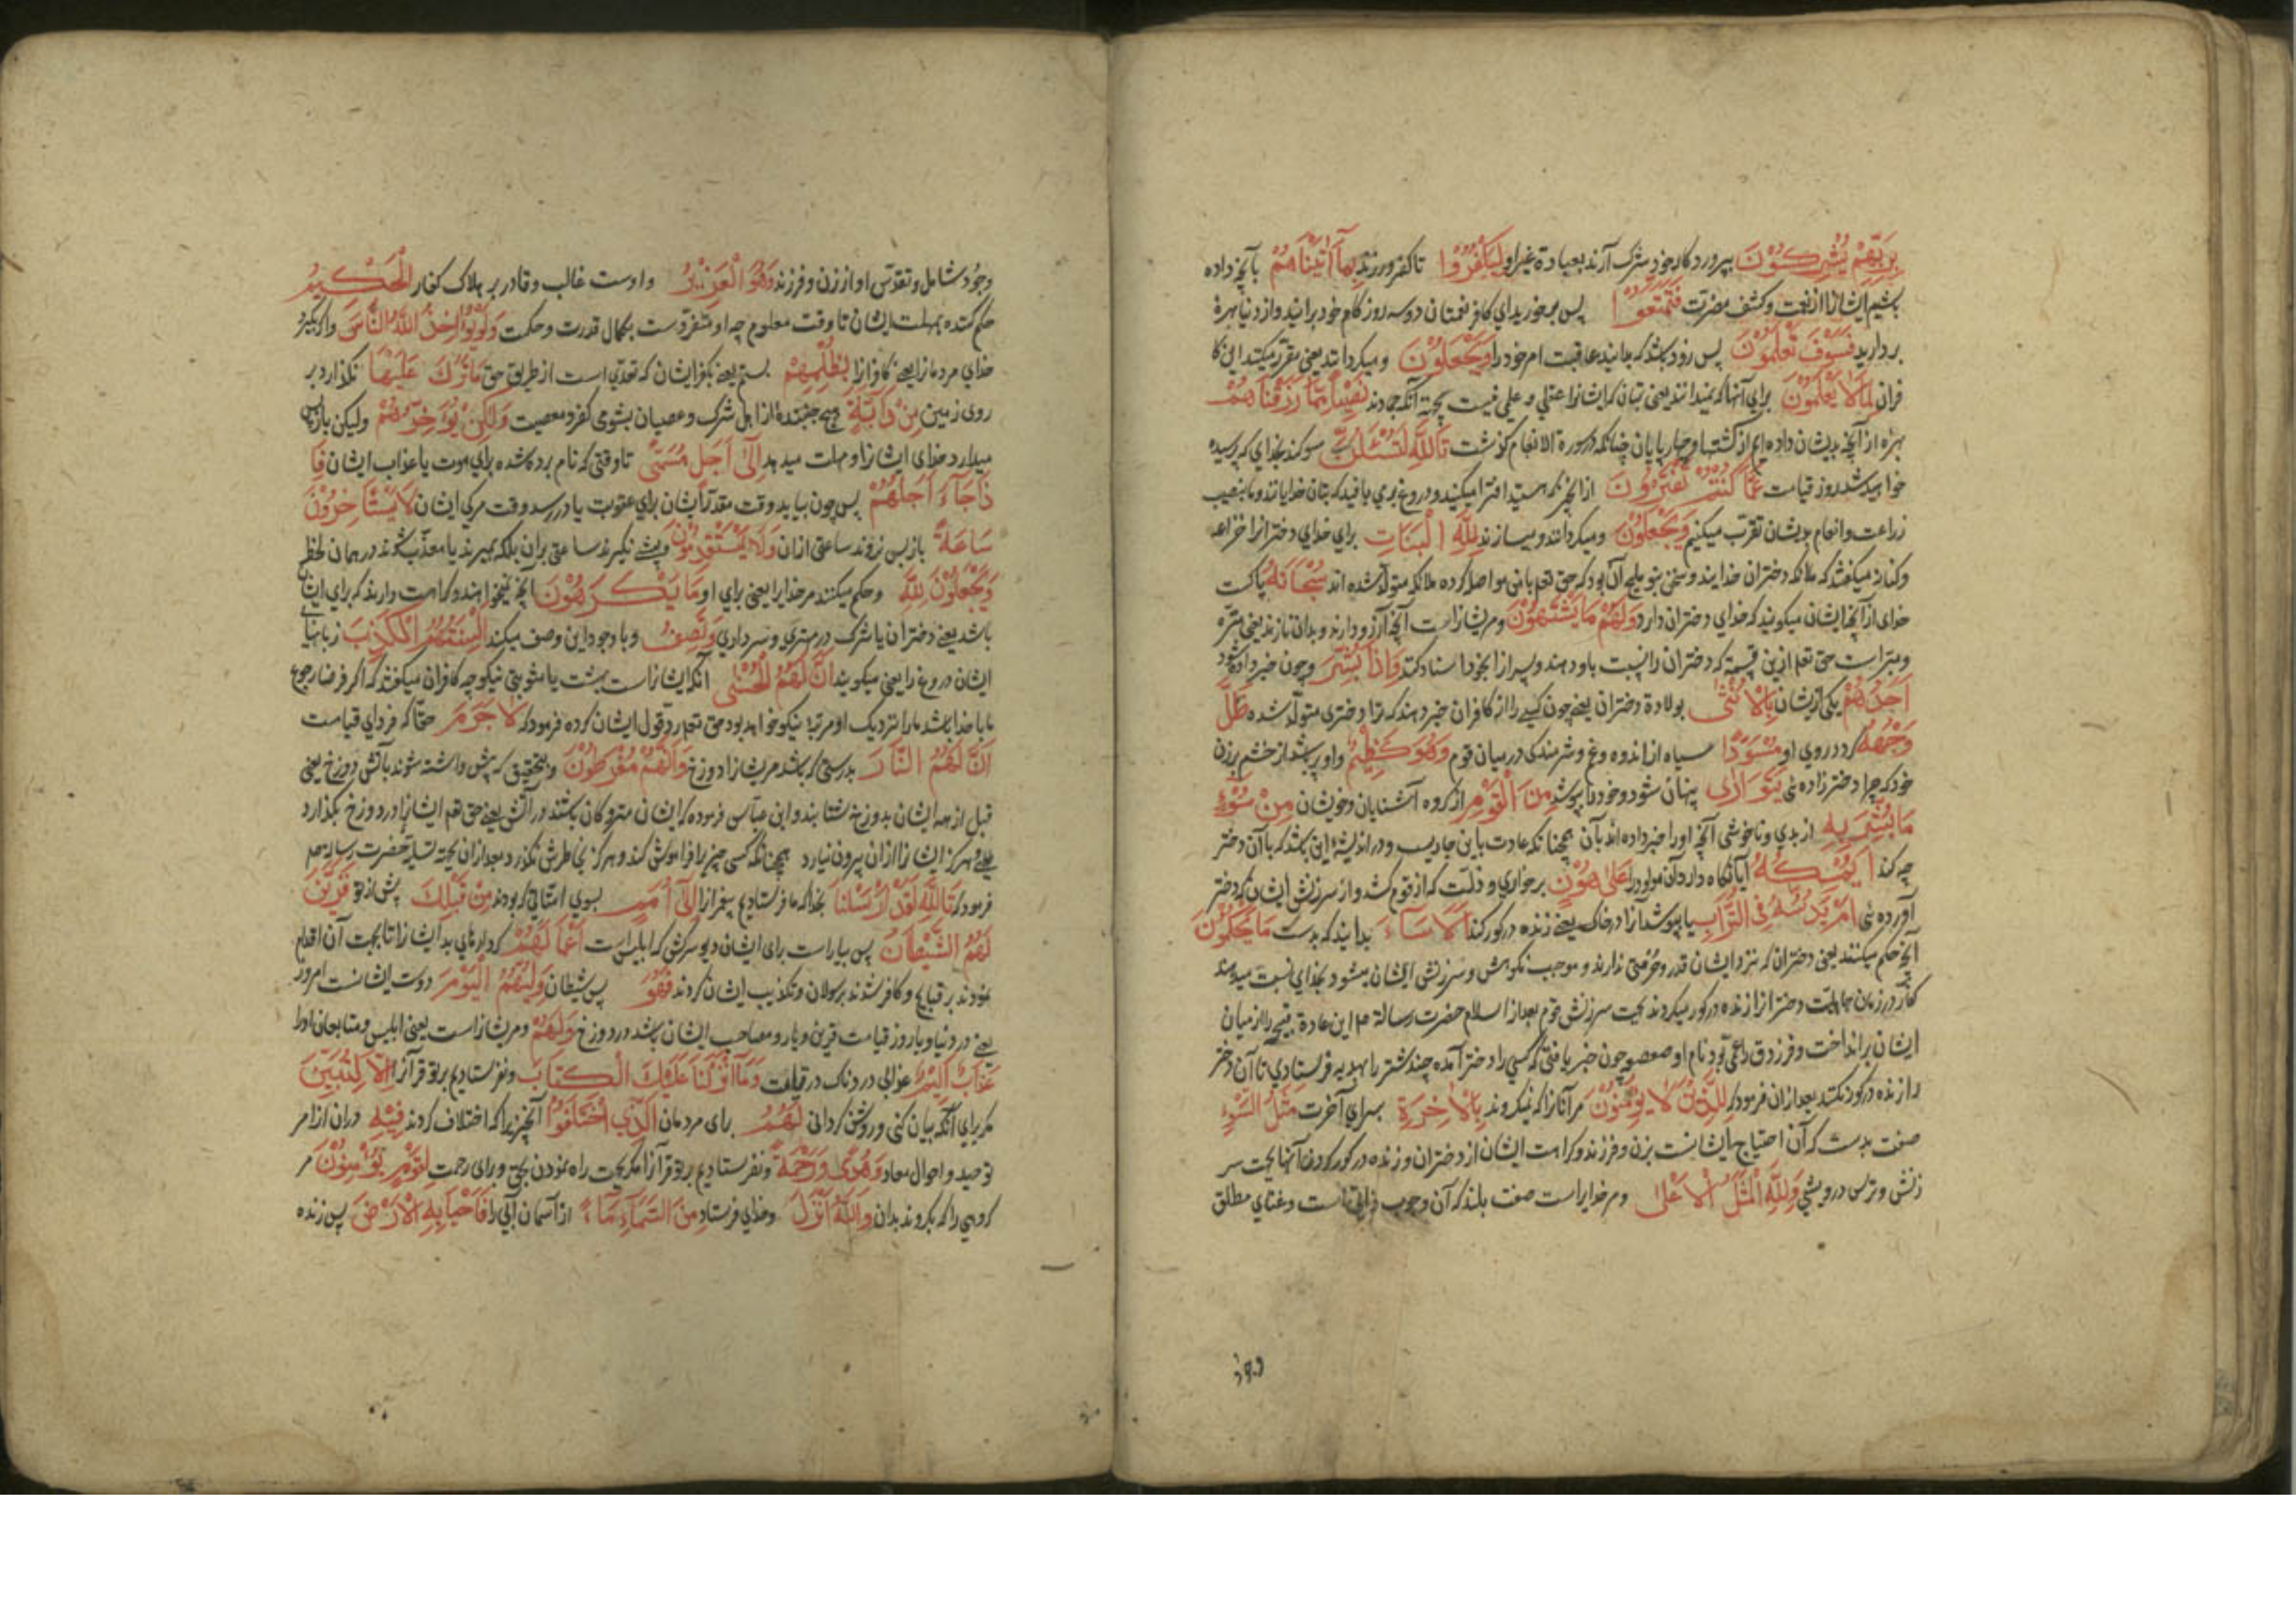 بِرَبِّهِمْ يُشْرِكُوْنَ بپروردکار خود شرک آرند بعبادة غیر او لِيَكْفُرُوْا تا کفر ورزند بِمَآ اٰتَيْنَاهُمْ بآنچه داده
ایشانرا از نعمت و کشف مضرت فَتَمَتَّعُوْا پس برخورید ای کافر نعمتان دو سه روز کام خود برانید و از دنیا بهرهٔ
بردارید فَسَوْفَ تَعْلَمُوْنَ پس زود باشد که بدانید عاقبت امر خود را وَيَجْعَلُوْنَ و میکردانند یعنی مقرر میکنند این کا
فران لِمَا لَا يَعْلَمُوْنَ برای آنها که نمیدانند یعنی بتان که ایشانرا عقلی و علمی نیست بجهة آنکه جمادند نَصِيْبًا مِمَّا رَزَقْنَاهُمْ
بهره از آنچه بدیشان داده ایم از کشتها و چهارپایان چنانکه در سورة الانعام کذشت تَاللّٰهِ لَتُسْئَلُنَّ سوکند بخدای که پرسیده
خواهید شد روز قیامت عَمَّا كُنْتُمْ تَفْتَرُوْنَ از آنچه هستید افترا میکنید و دروغ بر می بافید که بتان خدایانند و ما بنصیب
زراعت و انعام بدیشان تقرب میکنیم وَيَجْعَلُوْنَ و میکردانند و میسازند لِلّٰهِ الْبَنَاتِ برای خدای دختران را خزاعه
و کنانه میکفتند که ملائکه دختران خدایند و سخن بنو ملیح آن بود که حق تعم با جن مواصله کرده ملائکه متولد شده اند سُبْحَانَهُ پاکست
خدای از آنچه ایشان میکویند که خدای دختران دارد وَلَهُمْ مَا يَشْتَهُوْنَ و مر ایشانراست آنچه آرزو دارند و بدان نازند یعنی منزه
و مبراست حق تعم ازین قسمه که دختران را نسبت باو دهند و پسرانرا بخود اسناد کنند وَاِذَا بُشِّرَ و چون خبر داده شود
اَحَدُهُمْ یکی از ایشان بِالْاُنْثٰى بولادة دختران یعنی چون کسی را از کافران خبر دهند که ترا دختری متولد شده ظَلَّ
وَجْهُهُ کردد روی او مُسْوَدًّا سیاه از اندوه و غم و شرمندکی در میان قوم وَهُوَ كَظِيْمٌ و او پر باشد از خشم بر زن
خود که چرا دختر زاده ئی يَتَوَارٰى پنهان شود و خود را بپوشد مِنَ الْقَوْمِ از کروه آشنایان و خویشان مِنْ سُوْٓءِ
مَا بُشِّرَ بِهِ از بدی و ناخوشی آنچه او را خبر داده اند بآن همچنانکه عادت باین جاریست و در اندیشهٔ این باشد که با آن دختر
چه کند اَيُمْسِكُهُ آیا نکاه دارد آن مولود را عَلٰى هُوْنٍ بر خواری و ذلت که از قوم کشد و از سرزنش ایشان که دختر
آورده ئی اَمْ يَدُسُّهُ فِى التُّرَابِ یا بپوشد آنرا در خاک یعنی زنده در کور کند اَلَا سَآءَ بدانید که بدست مَا يَحْكُمُوْنَ
آنچه حکم میکنند یعنی دختران که نزد ایشان قدر و حرمتی ندارند و موجب نکوهش و سرزنش ایشان میشود بخدای نسبت میدهند
کفار در زمان جاهلیت دختران را زنده در کور میکردند بجهت سرزنش قوم بعد از اسلام حضرت رسالة صم این عادة قبیحه را از میان
ایشان برانداخت و فرزدق را عمی بود نام او صعصعه چون خبر یافتی که کسی را دختر آمده چند شتر را بهدیه فرستادی تا آن دختر
را زنده در کور نکنند بعد از ان فرمود که لِلَّذِيْنَ لَا يُؤْمِنُوْنَ مر آنانرا که نمیکروند بِالْاٰخِرَةِ بسرای آخرت مَثَلُ السَّوْءِ
صفت بدست که آن احتیاج ایشانست بزن و فرزند و کراهت ایشان از دختران و زنده در کور کردن آنها بجهت سر
زنش و ترس درویشی وَلِلّٰهِ الْمَثَلُ الْاَعْلٰى و مر خدایراست صفت بلند که آن وجوب ذاتی است و غنای مطلق
وجود شامل و تقدس او از زن و فرزند وَهُوَ الْعَزِيْزُ و اوست غالب و قادر بر هلاک کفار الْحَكِيْمُ
حکم کننده بمهلت ایشان تا وقت معلوم چه او متفردست بکمال قدرت و حکمت وَلَوْ يُؤَاخِذُ اللّٰهُ النَّاسَ و اکر بکیرد
خدای مردمانرا یعنی کافرانرا بِظُلْمِهِمْ بستم یعنی بکفر ایشان که تعدی است از طریق حق مَا تَرَكَ عَلَيْهَا نکذارد بر
روی زمین مِنْ دَآبَّةٍ هیچ جنبندهٔ از اهل شرک و عصیان بشومی کفر و معصیت وَلٰكِنْ يُؤَخِّرُهُمْ ولیکن باز پس
میدارد خدای ایشانرا و مهلت میدهد اِلٰٓى اَجَلٍ مُسَمًّى تا وقتی که نام برده شده برای موت یا عذاب ایشان فَاِ
ذَا جَآءَ اَجَلُهُمْ پس چون بیاید وقت مقدر ایشان برای عقوبت یا در رسد وقت مرک ایشان لَا يَسْتَاْخِرُوْنَ
سَاعَةً باز پس نروند ساعتی از ان وَلَا يَسْتَقْدِمُوْنَ و پیشی نکیرند ساعتی بر آن بلکه بمیرند یا معذب شوند در همان لحظه
وَيَجْعَلُوْنَ لِلّٰهِ و حکم میکنند مر خدایرا یعنی برای او مَا يَكْرَهُوْنَ آنچه نمیخواهند و کراهت دارند که برای ایشان
باشد یعنی دختران یا شرک در مهتری و سرداری وَتَصِفُ و با وجود این وصف میکند اَلْسِنَتُهُمُ الْكَذِبَ زبانهای
ایشان دروغ را یعنی میکویند اَنَّ لَهُمُ الْحُسْنٰى آنکه ایشانراست بهشت یا مثوبتی نیکو چه کافران میکفتند که اکر فرضا رجوع
ما با خدا باشد ما را نزدیک او مرتبهٔ نیکو خواهد بود حق تعم رد قول ایشان کرده فرمود که لَا جَرَمَ حقا که فردای قیامت
اَنَّ لَهُمُ النَّارَ بدرستی که باشد مر ایشانرا دوزخ وَاَنَّهُمْ مُفْرَطُوْنَ و بتحقیق که پیش داشته شوند بآتش دوزخ یعنی
قبل از همه ایشان بدوزخ شتابند و ابن عباس فرموده که ایشان متروکان باشند در آتش یعنی حق تعم ایشانرا در دوزخ بکذارد
و هرکز ایشانرا از ان بیرون نیارد همچنانکه کسی چیزیرا فراموش کند و هرکز بخاطرش نکذرد بعد از ان بجهة تسلیهٔ حضرت رسالة صم
فرمود که تَاللّٰهِ لَقَدْ اَرْسَلْنَا بخدا که ما فرستادیم پیغمبرانرا اِلٰٓى اُمَمٍ بسوی امتانی که بودند مِنْ قَبْلِكَ پیش از تو فَزَيَّنَ
لَهُمُ الشَّيْطَانُ پس بیاراست برای ایشان دیو سرکش که ابلیس است اَعْمَالَهُمْ کردارهای بد ایشانرا تا بجهت آن اقدام
نمودند بر قبایح و کافر شدند برسولان و تکذیب ایشان کردند فَهُوَ پس شیطان وَلِيُّهُمُ الْيَوْمَ دوست ایشانست امروز
یعنی در دنیا و یا روز قیامت قرین و یار و مصاحب ایشان باشد در دوزخ وَلَهُمْ و مر ایشانراست یعنی ابلیس و متابعان او را
عَذَابٌ اَلِيْمٌ عذابی دردناک در قیامت وَمَآ اَنْزَلْنَا عَلَيْكَ الْكِتَابَ و نفرستادیم بر تو قرآنرا اِلَّا لِتُبَيِّنَ
مکر برای آنکه بیان کنی و روشن کردانی لَهُمُ برای مردمان الَّذِى اخْتَلَفُوْا آنچیزیرا که اختلاف کردند فِيْهِ در ان از امر
توحید و احوال معاد وَهُدًى وَرَحْمَةً و نفرستادیم بر تو قرآنرا مکر بجهت راه نمودن بحق و برای رحمت لِقَوْمٍ يُؤْمِنُوْنَ مر
کروهی را که بکروند بدان وَاللّٰهُ اَنْزَلَ و خدای فرستاد مِنَ السَّمَآءِ مَآءً از آسمان آبی را فَاَحْيَا بِهِ الْاَرْضَ پس زنده